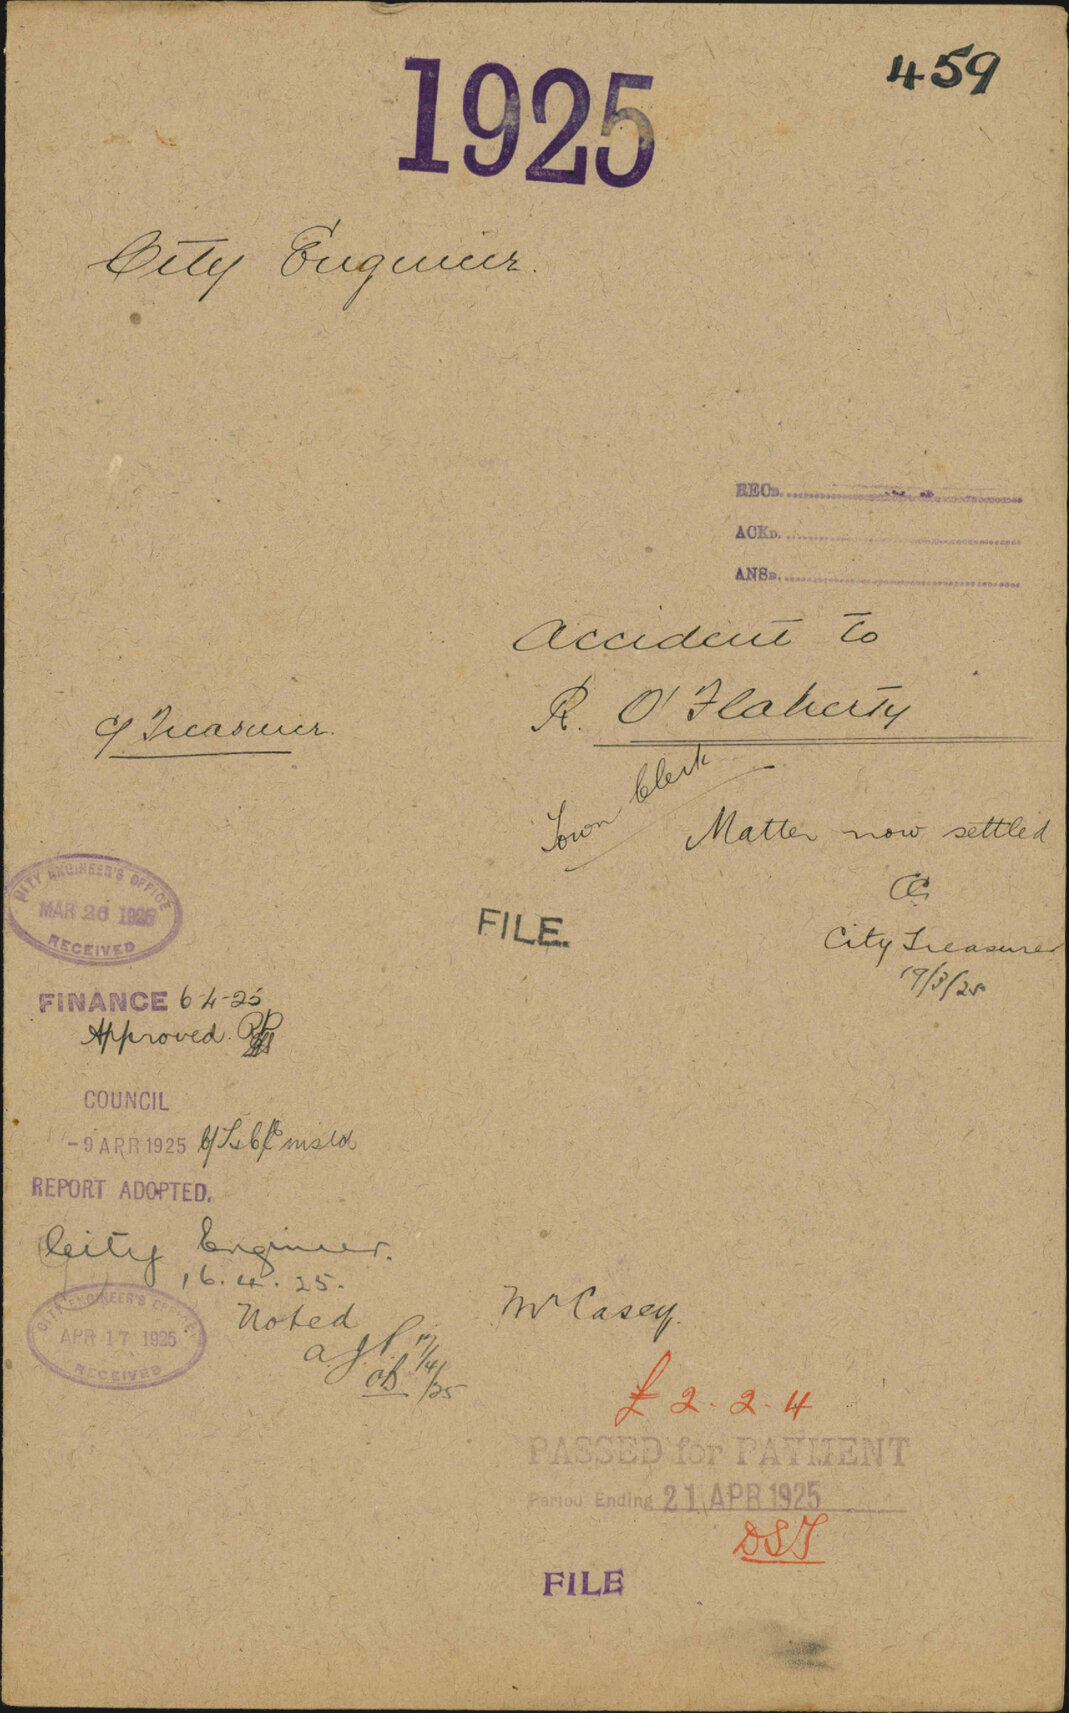 1925
459
City Engineer.
RECD.
ACKD.
ANSD.
Accident to
R. O'Flaherty
Cy Treasurer.
Town Clerk
Matter now settled
City Treasurer
19/3/25
CITY ENGINEER'S OFFICE
MAR 26 1925
RECEIVED
FILE.
FINANCE 6-4-25
Approved.
COUNCIL
-9 APR 1925
REPORT ADOPTED.
City Engineer.
16.4.25.
CITY ENGINEER'S OFFICE
APR 17 1925
RECEIVED
Noted
17/4/25
Mr Casey.
£2.2.4
PASSED for PAYMENT
Period Ending 21 APR 1925
DST
FILE